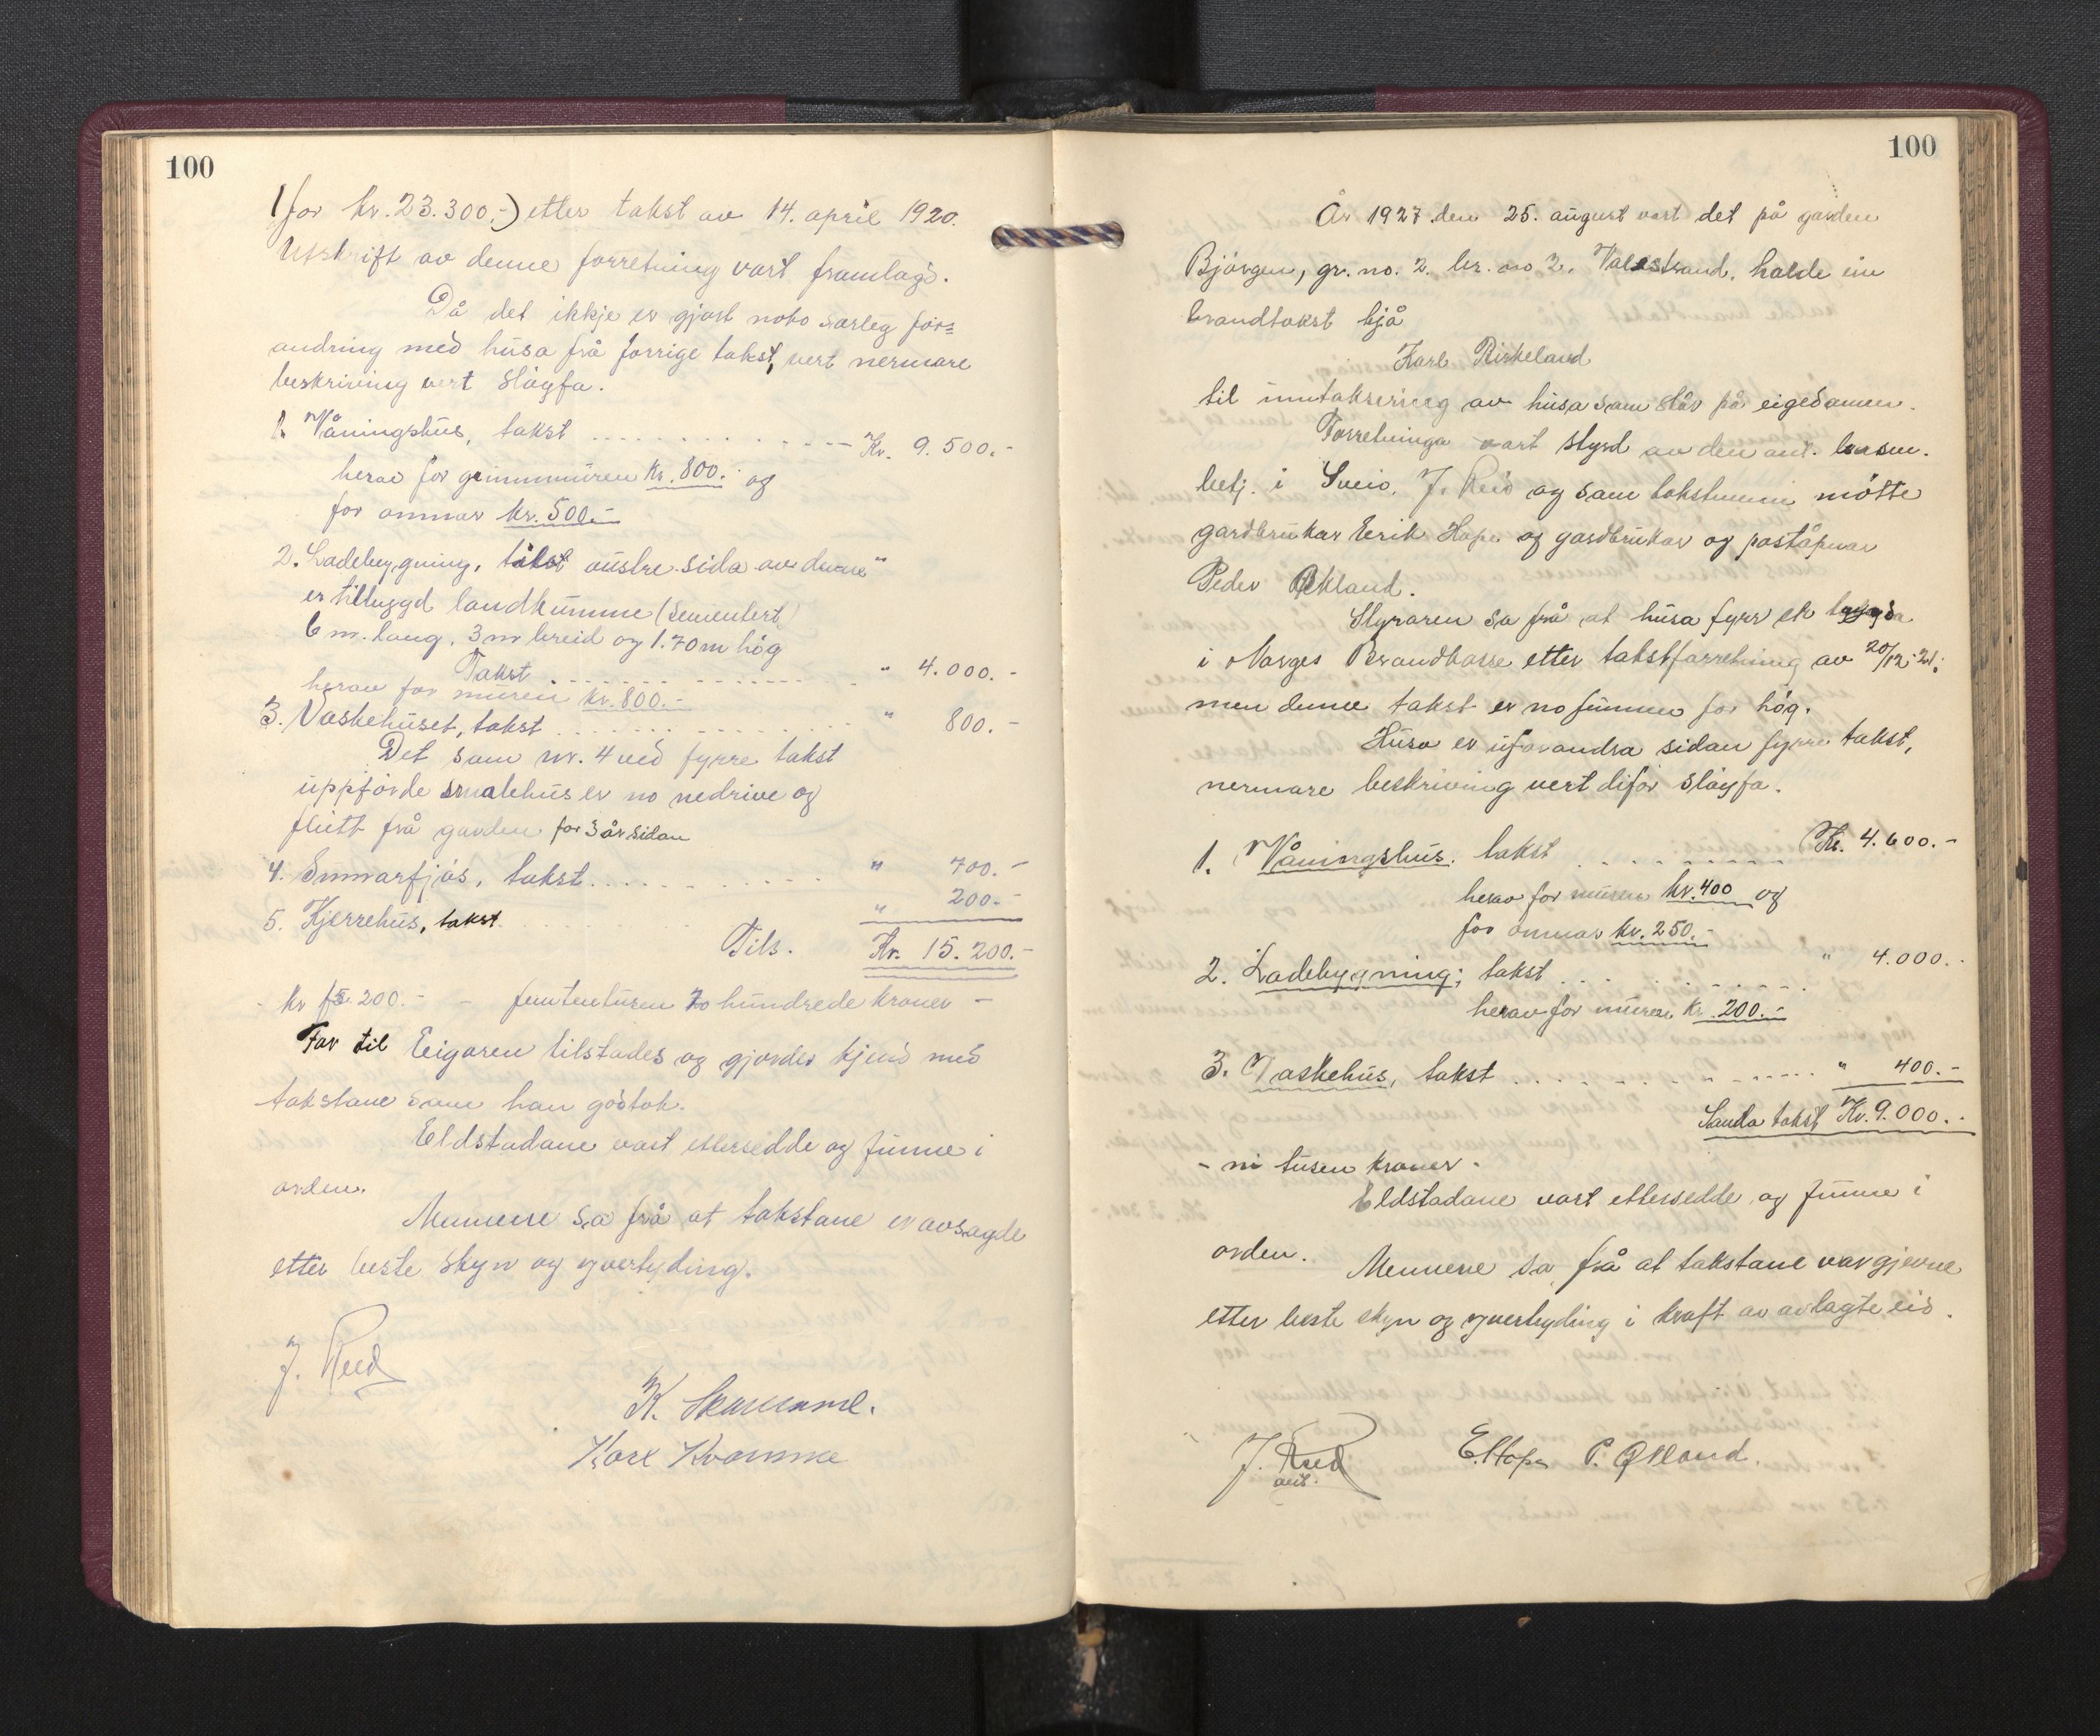 100
(for kr. 23.300,-) etter takst av 14. april 1920.
Utskrift av denne forretning vart framlagd.
Då det ikkje er gjort noko særleg for=
andring med husa frå forrige takst, vert nermare
beskriving vert sløyfa.
1. Våningshus, takst Kr. 9.500.-
herav for grunnmuren kr. 800.- og
for omnar kr. 500.-
2. Ladebygning, takst austre sida av denne
er tilbygd landkumme (sementert)
6 m. lang, 3 m breid og 1.70 m høg
Takst " 4.000.-
herav for muren kr. 800.-
3. Vaskehuset, takst " 800.-
Det som nr. 4 ved fyrre takst
uppførde smalehus er no nedrive og
flutt frå garden for 3 år sidan
4. Sumarfjøs, takst " 700.-
5. Kjerrehus, takst " 200.-
Tils. Kr. 15.200.-
- kr 15.200.- - femtentusen to hundrede kroner -
For til Eigaren tilstades og gjordes kjend med
takstane som han godtok.
Eldstadane vart ettersedde og funne i
orden.
Mennene sa frå at takstane er avsagde
etter beste skyn og yvertyding.
J. Rød
K.
Karl Kvamme
100
År 1927 den 25. august vart det på garden
Bjørgen, gr. no. 2. br. no 2. Valestrand, halde ein
brandtakst hjå
Karl Birkeland
til inntaksering av husa som står på eigedomen.
Forretninga vart styrd av den ant. lensm.
betj. i Sveio. J. Rød og som takstmenn møtte
gardbrukar Erik Hope og gardbrukar og poståpnar
Peder Økland.
Styraren sa frå at husa fyrr er trygda
i Norges Brandkasse etter takstforretning av 20/12-21;
men denne takst er no funnen for høg.
Husa er uforandra sidan fyrre takst,
nermare beskriving vert difor sløyfa.
1. Våningshus, takst Kr. 4.600.-
herav for muren kr. 400 og
for omnar kr. 250.-
2. Ladebygning; takst " 4.000.-
herav for muren kr. 200.-
3. Vaskehus, takst " 400.-
Samla takst Kr. 9.000.-
- ni tusen kroner -
Eldstadane vart ettersedde og funne i
orden.
Mennene sa frå at takstane var gjevne
etter beste skyn og yvertyding i kraft av avlagte eid.
J. Rød E. Hope P. Økland.
ant.